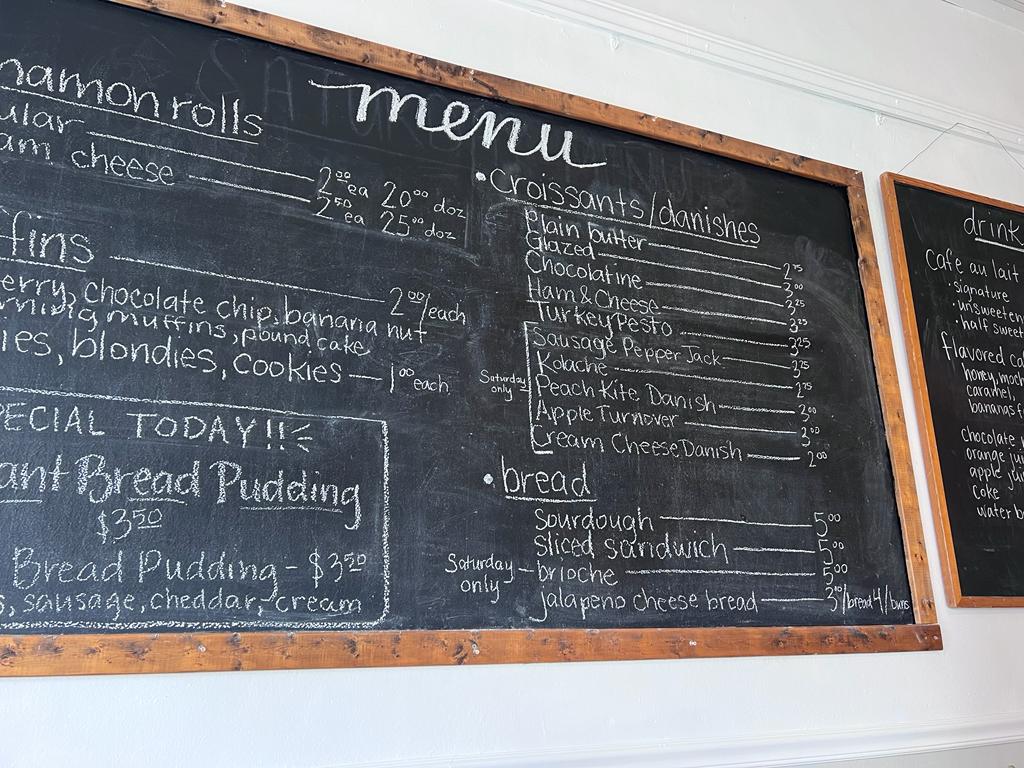 menu
namon rolls
ular 2.00 ea 20.00 doz
am cheese 2.50 ea 25.00 doz
ffins 2.00/each
erry, chocolate chip, banana nut
rning muffins, pound cake
ies, blondies, cookies — 1.00 each
PECIAL TODAY!!
ant Bread Pudding
$3.50
Bread Pudding - $3.50
s, sausage, cheddar, cream
• croissants/danishes
Plain butter 2.75
Glazed 3.00
Chocolatine 3.25
Ham & Cheese 3.25
Turkey Pesto 3.25
Saturday only
Sausage Pepper Jack 3.25
Kolache 2.75
Peach Kite Danish 3.00
Apple Turnover 3.00
Cream Cheese Danish 2.00
• bread
Sourdough 5.00
Sliced sandwich 5.00
Saturday only - brioche 5.00
jalapeno cheese bread /bread 4/buns
drink
Cafe au lait
• signature
• unsweeten
• half sweet
flavored ca
honey, moch
caramel,
bananas f
chocolate
orange jui
apple jui
Coke
water b